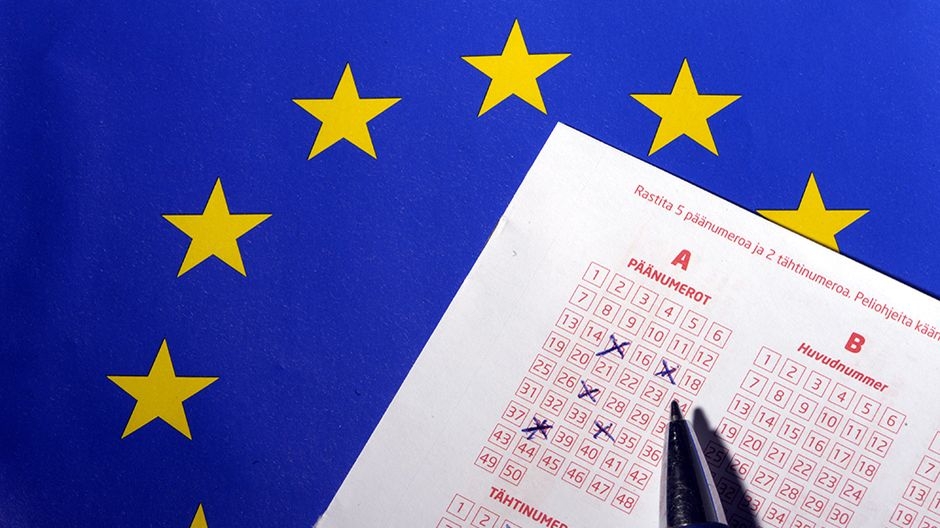 Rastita 5 päänumeroa ja 2 tähtinumeroa. Peliohjeita
A
PÄÄNUMEROT
1 2 3 4 5 6
7 8 9 10 11 12
13 14 16 18
19 20 21 22 23
25 26 28 29
31 32 33 35 36
37 39 40 41 42
43 44 45 46 47 48
49 50
TÄHTINUMEROT
1 2
B
Huvudnummer
1 2 3 4 5 6
7 8 9 10 11 12
13 14 15 16 17 18
19 20 21 22 23 24
26 27 28 29 30